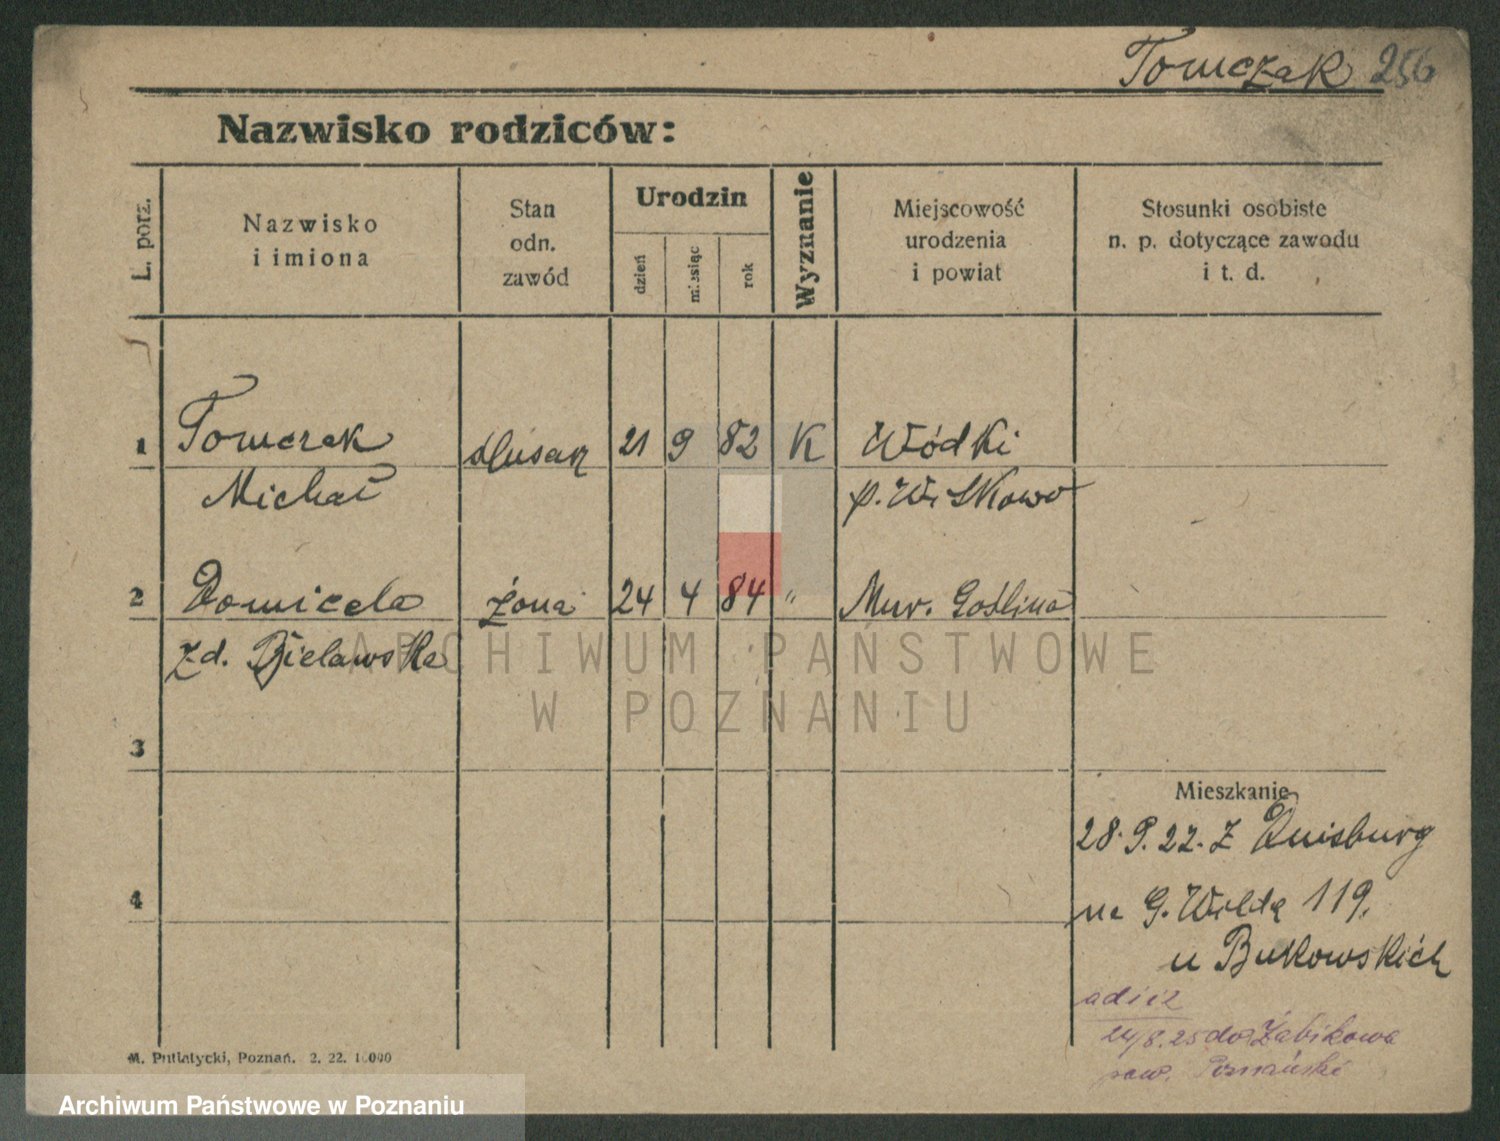 Tomczak 256
Nazwisko rodziców:
L. porz.
Nazwisko
i imiona
Stan
odn.
zawód
Urodzin
dzień
miesiąc
rok
Wyznanie
Miejscowość
urodzenia
i powiat
Stosunki osobiste
n. p. dotyczące zawodu
i t. d.
1 Tomczak ślusarz 21 9 82 K Wódki
Michał p. Witkowo
2 Domicela żona 24 4 84 " Mur. Goślina
zd. Bielawska
3
4
Mieszkanie
28.9.22. z Duisburg
na G. Wildę 119.
u Bukowskich
24/8.25 do Żabikowa
pow. Poznański
M. Putiatycki, Poznań. 2. 22. 10000
ARCHIWUM PAŃSTWOWE
W POZNANIU
Archiwum Państwowe w Poznaniu